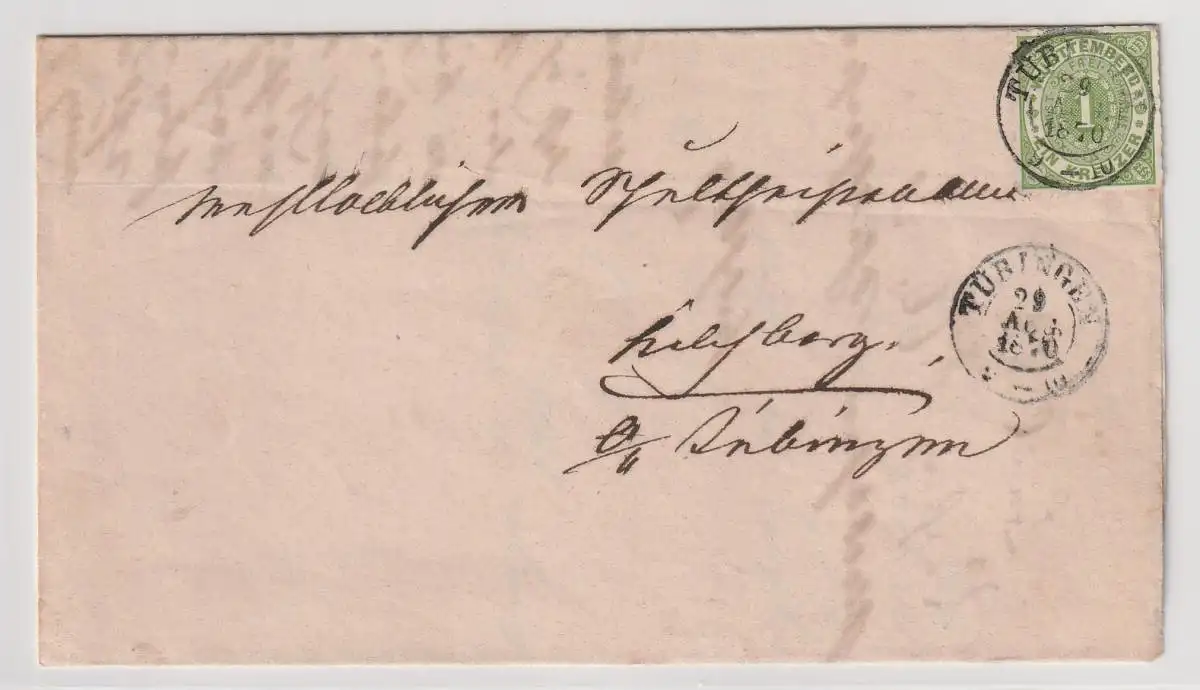 WÜRTTEMBERG
1
EIN KREUZER
TÜB
29
1870
Wohllöblichem Schultheißenamt
Kilchberg.
O/A Tübingen
TÜBINGEN
29
AUG
1870